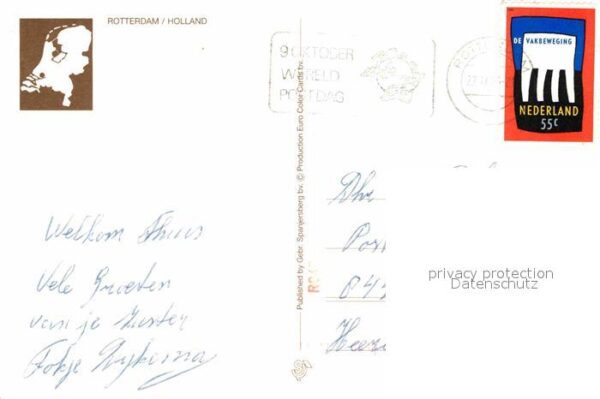 ROTTERDAM / HOLLAND
9 OKTOBER
WERELD
POSTDAG
ROTTERDAM
DE VAKBEWEGING
NEDERLAND
55c
Published by Gebr. Spanjersberg bv. © Production Euro Color Cards bv.
Welkom Thuis
Vele Groeten
van je Zuster
Fokje Dykstra
Dhr
Pos
842
Heere
privacy protection
Datenschutz